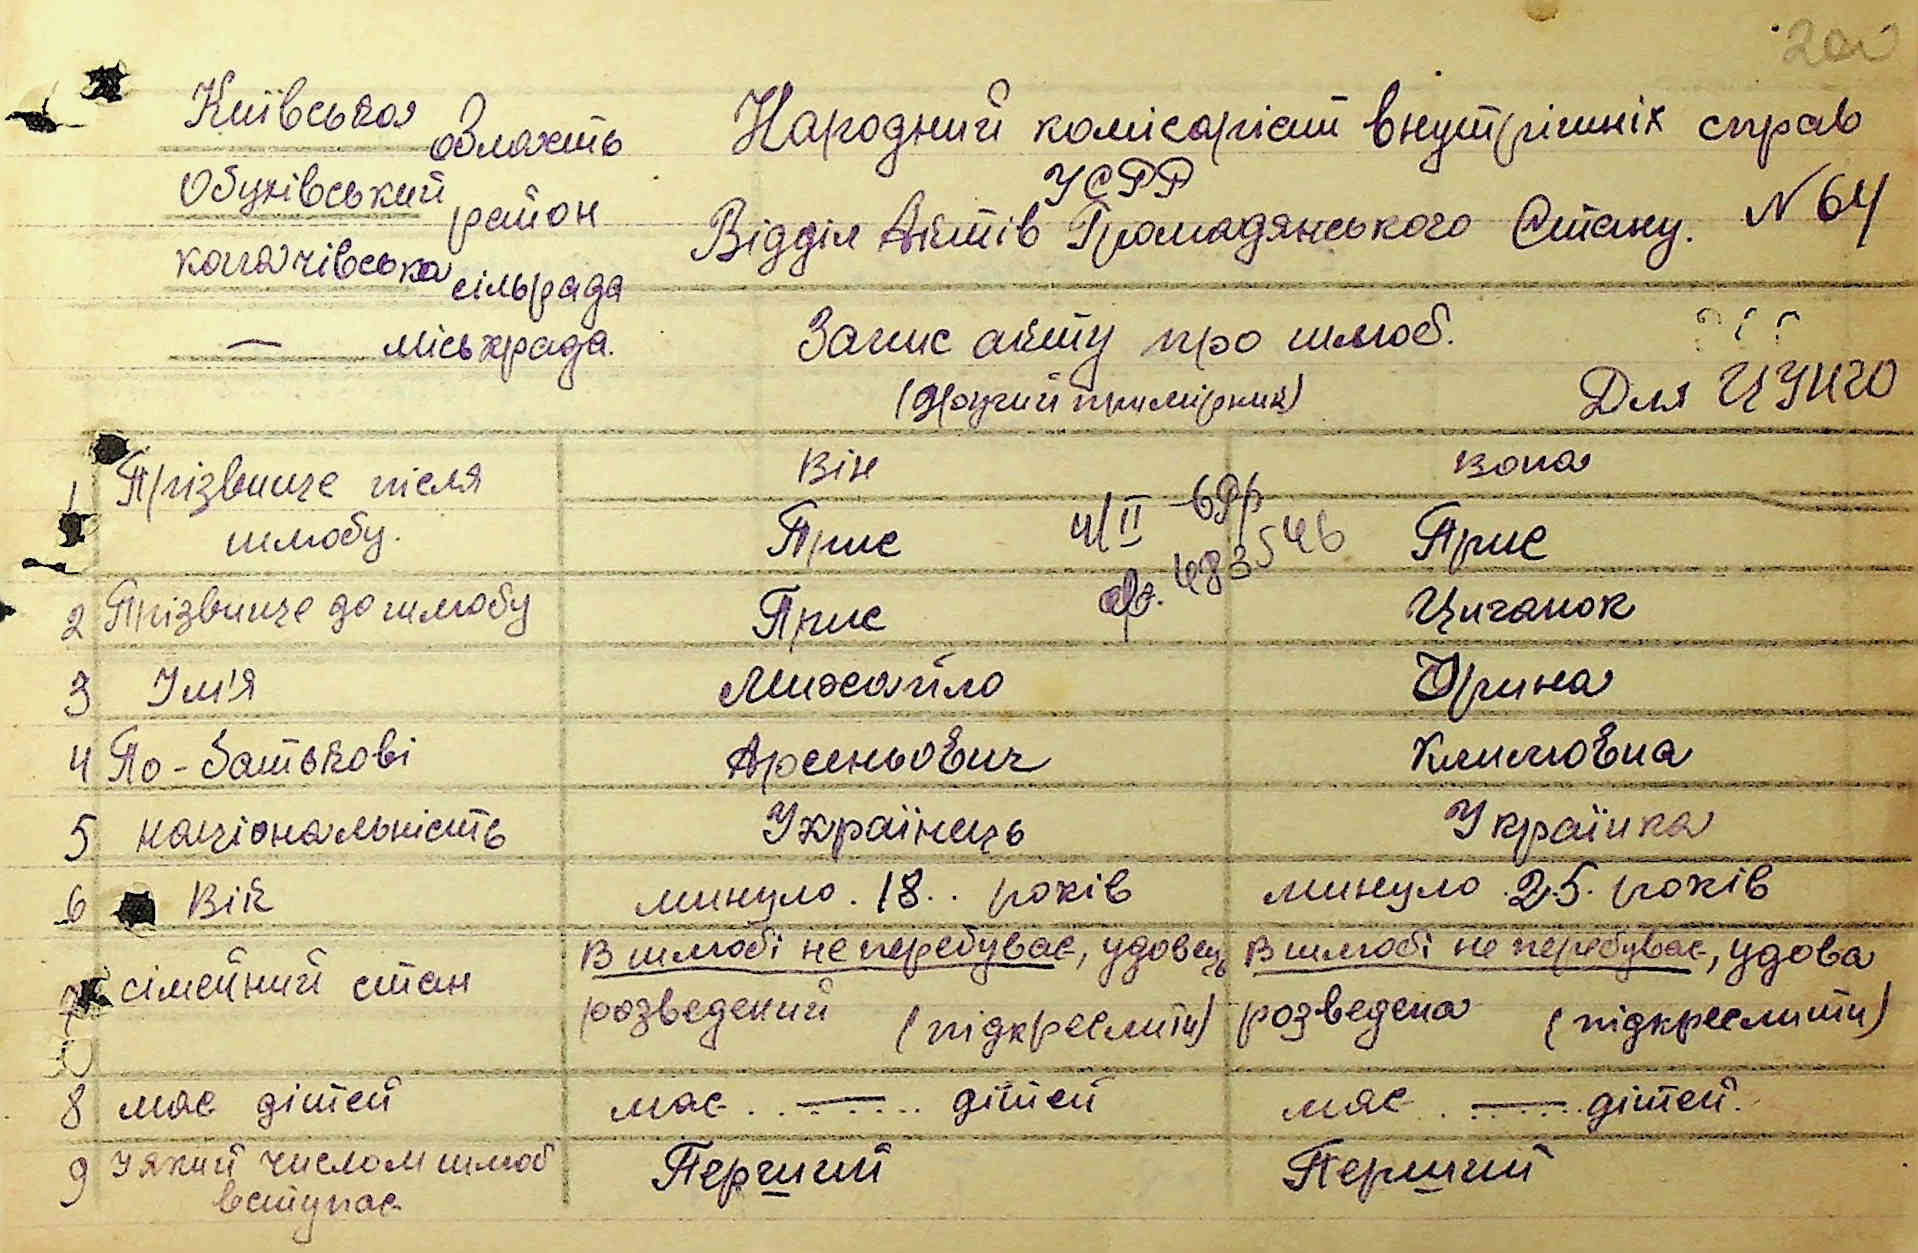 Київська область
Обухівський район
копачівська сільрада
— міськрада.
Народний комісаріат внутрішніх справ
УСРР
Відділ Актів Громадянського Стану. N 64
Запис акту про шлюб.
(Другий примірник)
Для ЦУНГО
Він
вона
1 Прізвище після шлюбу.
Прис
4/II 69р
483546
Прис
2 Прізвище до шлюбу
Прис
Циганок
3 Ім'я
Михайло
Орина
4 По-батькові
Арсеньович
Климовна
5 національність
Українець
Українка
6 Вік
минуло . 18 . . років
минуло . 25 . років
7 сімейний стан
В шлюбі не перебуває, удовець
розведений (підкреслити)
В шлюбі не перебуває, удова
розведена (підкреслити)
8 має дітей
має . . — . . дітей
має . . — . . дітей.
9 У який числом шлюб
вступає
Перший
Перший